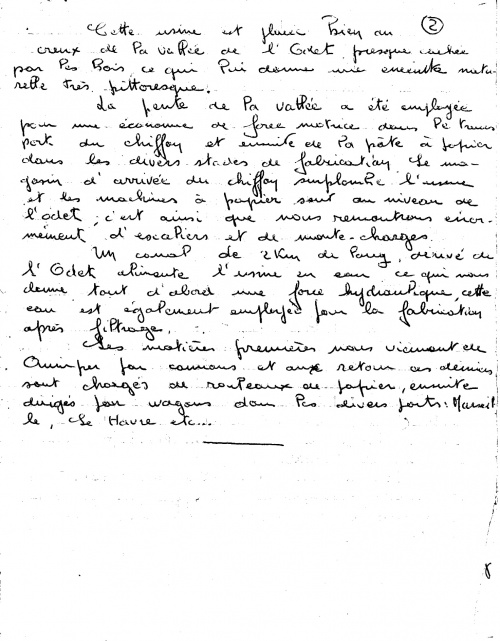 ②
Cette usine est placée Bien au
creux de la vallée de l'Odet presque cachée
par les Bois, ce qui lui donne une enceinte natu-
relle très pittoresque.
La pente de la vallée a été employée
pour une économie de force motrice dans le trans
port du chiffon et ensuite de la pâte à papier
dans les divers stades de fabrication. Le ma-
gasin d'arrivée du chiffon surplombe l'usine
et les machines à papier sont au niveau de
l'odet ; c'est ainsi que nous remontrons énor-
mément d'escaliers et de monte-charges.
Un canal de 2Km de long, dérivé de
l'Odet alimente l'usine en eau ce qui nous
donne tout d'abord une force hydraulique, cette
eau est également employée pour la fabrication
après filtrage.
Les matières premières nous viennent de
Quimper par camions et aux retour ces derniers
sont chargés de rouleaux de papier, ensuite
dirigés par wagons dans les divers ports : Marseil
le, Le Havre etc...